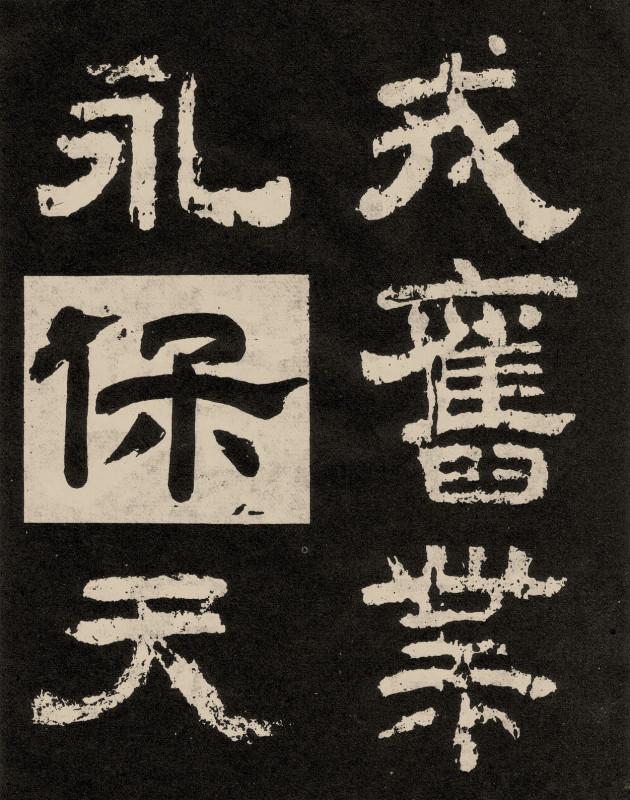 我舊業
永保天